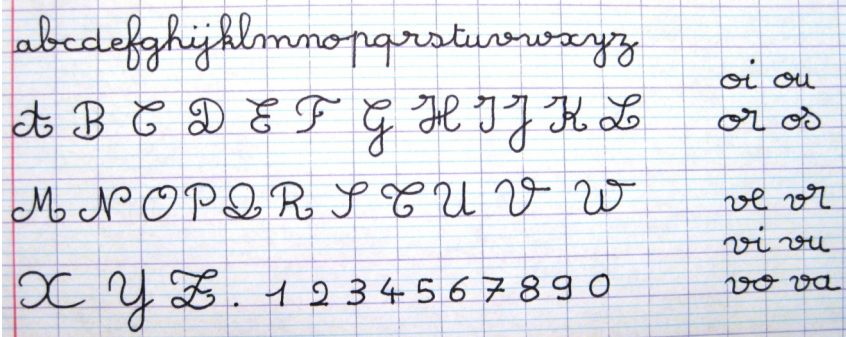 abcdefghijklmnopqrstuvwxyz
A B C D E F G H I J K L
M N O P Q R S T U V W
X Y Z . 1 2 3 4 5 6 7 8 9 0
oi ou
or os
ve vr
vi vu
vo va